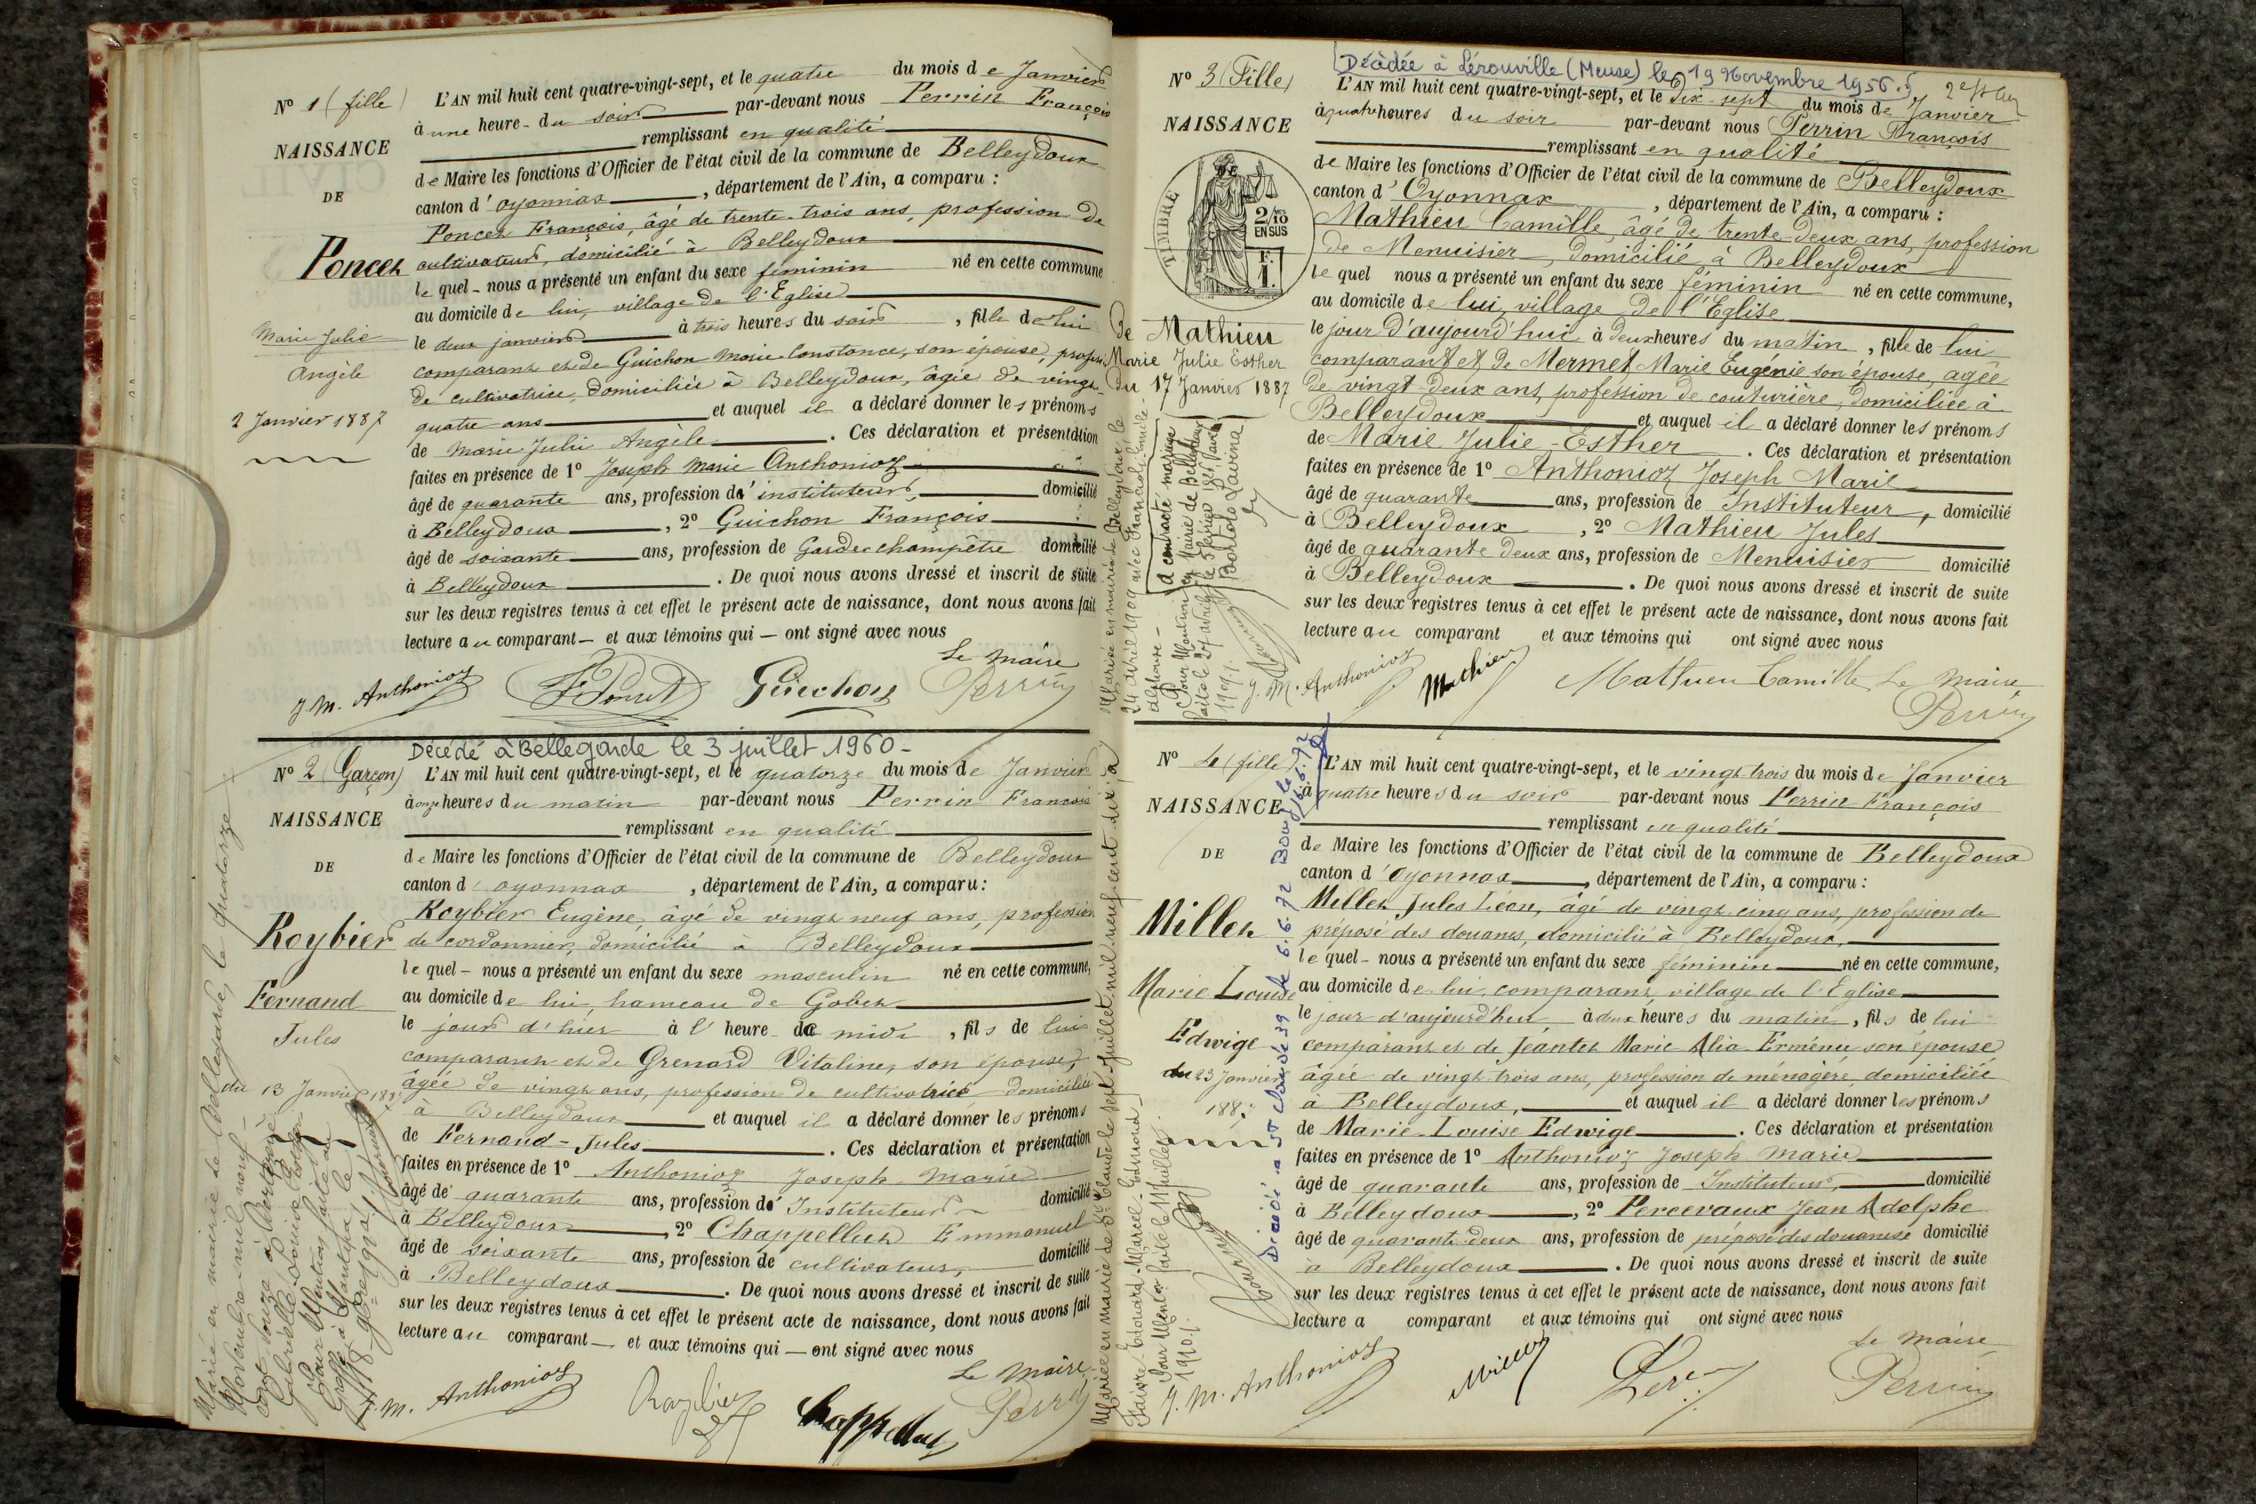 N° 1 (fille)
NAISSANCE
DE
Poncet
Marie Julie
Angèle
2 Janvier 1887
L'AN mil huit cent quatre-vingt-sept, et le quatre du mois de Janvier
à une heure du soir par-devant nous Perrin François
remplissant en qualité
de Maire les fonctions d'Officier de l'état civil de la commune de Belleydoux
canton d'oyonnax, département de l'Ain, a comparu :
Poncet François, âgé de trente-trois ans, profession de
cultivateur, domicilié à Belleydoux
le quel nous a présenté un enfant du sexe féminin né en cette commune
au domicile de lui, village de l'Eglise
le deux janvier à trois heures du soir, fille de lui
comparant et de Guichon Marie Constance, son épouse, profes.
de cultivatrice, domiciliée à Belleydoux, âgée de vingt-
quatre ans et auquel il a déclaré donner les prénoms
de Marie Julie Angèle. Ces déclaration et présentation
faites en présence de 1° Joseph Marie Anthonioz
âgé de quarante ans, profession d'instituteur, domicilié
à Belleydoux, 2° Guichon François
âgé de soixante ans, profession de Garde champêtre domicilié
à Belleydoux. De quoi nous avons dressé et inscrit de suite
sur les deux registres tenus à cet effet le présent acte de naissance, dont nous avons fait
lecture au comparant et aux témoins qui ont signé avec nous
Le Maire
J. M. Anthonioz Poncet Guichon Perrin
Décédé à Bellegarde le 3 juillet 1960 -
N° 2 (Garçon)
NAISSANCE
DE
Roybier
Fernand
Jules
du 13 Janvier 188
L'AN mil huit cent quatre-vingt-sept, et le quatorze du mois de Janvier
à onze heures du matin par-devant nous Perrin François
remplissant en qualité
de Maire les fonctions d'Officier de l'état civil de la commune de Belleydoux
canton d'oyonnax, département de l'Ain, a comparu :
Roybier Eugène, âgé de vingt neuf ans, profession
de cordonnier, domicilié à Belleydoux
le quel nous a présenté un enfant du sexe masculin né en cette commune,
au domicile de lui, hameau de Gobet
le jour d'hier à l'heure de midi, fils de lui
comparant et de Grenard Vitaline, son épouse,
âgée de vingt ans, profession de cultivatrice domiciliée
à Belleydoux et auquel il a déclaré donner les prénoms
de Fernand-Jules. Ces déclaration et présentation
faites en présence de 1° Anthonioz Joseph Marie
âgé de quarante ans, profession d'Instituteur domicilié
à Belleydoux, 2° Chappelluz Emmanuel
âgé de soixante ans, profession de cultivateur, domicilié
à Belleydoux. De quoi nous avons dressé et inscrit de suite
sur les deux registres tenus à cet effet le présent acte de naissance, dont nous avons fait
lecture au comparant et aux témoins qui ont signé avec nous
Le Maire
J. M. Anthonioz Roybier Chappelluz Perrin
Marié en mairie de Bellegarde, le quatorze
Novembre mil neuf
Gabrielle Louise
Pour Mention faite au
Greffe à Nantua le
Décédée à Lérouville (Meuse) le 19 Novembre 1956.
N° 3 (Fille)
NAISSANCE
TIMBRE
2/10
EN SUS
F.
1.
de Mathieu
Marie Julie Esther
du 17 Janvier 1887
L'AN mil huit cent quatre-vingt-sept, et le Dix-sept du mois de Janvier
à quatre heures du soir par-devant nous Perrin François
remplissant en qualité
de Maire les fonctions d'Officier de l'état civil de la commune de Belleydoux
canton d'Oyonnax, département de l'Ain, a comparu :
Mathieu Camille, âgé de trente deux ans, profession
de Menuisier, domicilié à Belleydoux
le quel nous a présenté un enfant du sexe féminin né en cette commune,
au domicile de lui, village de l'Eglise
le jour d'aujourd'hui à deux heures du matin, fille de lui
comparant et de Mermet Marie Eugénie son épouse, agée
de vingt-deux ans, profession de couturière, domiciliée à
Belleydoux et auquel il a déclaré donner les prénoms
de Marie Julie-Esther. Ces déclaration et présentation
faites en présence de 1° Anthonioz Joseph Marie
âgé de quarante ans, profession de Instituteur, domicilié
à Belleydoux, 2° Mathieu Jules
âgé de quarante deux ans, profession de Menuisier domicilié
à Belleydoux. De quoi nous avons dressé et inscrit de suite
sur les deux registres tenus à cet effet le présent acte de naissance, dont nous avons fait
lecture au comparant et aux témoins qui ont signé avec nous
J. M. Anthonioz Mathieu Mathieu Camille Le Maire
Perrin
Mariée en mairie de Belleydoux le
24 avril 1909 avec
Pour Mention
faite le 27 avril
1909
a contracté mariage
en Mairie de Belleydoux
N° 4 (fille)
NAISSANCE
DE
Millet
Marie Louise
Edwige
du 23 Janvier
1887
L'AN mil huit cent quatre-vingt-sept, et le vingt trois du mois de Janvier
à quatre heures du soir par-devant nous Perrin François
remplissant en qualité
de Maire les fonctions d'Officier de l'état civil de la commune de Belleydoux
canton d'oyonnax, département de l'Ain, a comparu :
Millet Jules Léon, âgé de vingt cinq ans, profession de
préposé des douanes, domicilié à Belleydoux,
le quel nous a présenté un enfant du sexe féminin né en cette commune,
au domicile de lui, comparant, village de l'Eglise
le jour d'aujourd'hui à deux heures du matin, fils de lui
comparant et de Jeantet Marie Alia Erménie son épouse
âgée de vingt trois ans, profession de ménagère domiciliée
à Belleydoux, et auquel il a déclaré donner les prénoms
de Marie-Louise Edwige. Ces déclaration et présentation
faites en présence de 1° Anthonioz Joseph Marie
âgé de quarante ans, profession de Instituteur, domicilié
à Belleydoux, 2° Percevaux Jean Adolphe
âgé de quarante deux ans, profession de préposé des douanes domicilié
à Belleydoux. De quoi nous avons dressé et inscrit de suite
sur les deux registres tenus à cet effet le présent acte de naissance, dont nous avons fait
lecture a comparant et aux témoins qui ont signé avec nous
Le Maire
J. M. Anthonioz Millet Perrin
Mariée en mairie de St Claude le sept Juillet mil neuf cent dix, à
Faivre-Edouard-Marcel-Edmond
Pour Mention faite le 11 Juillet
1910
Décédée à St Claude 39 le 6.6.72